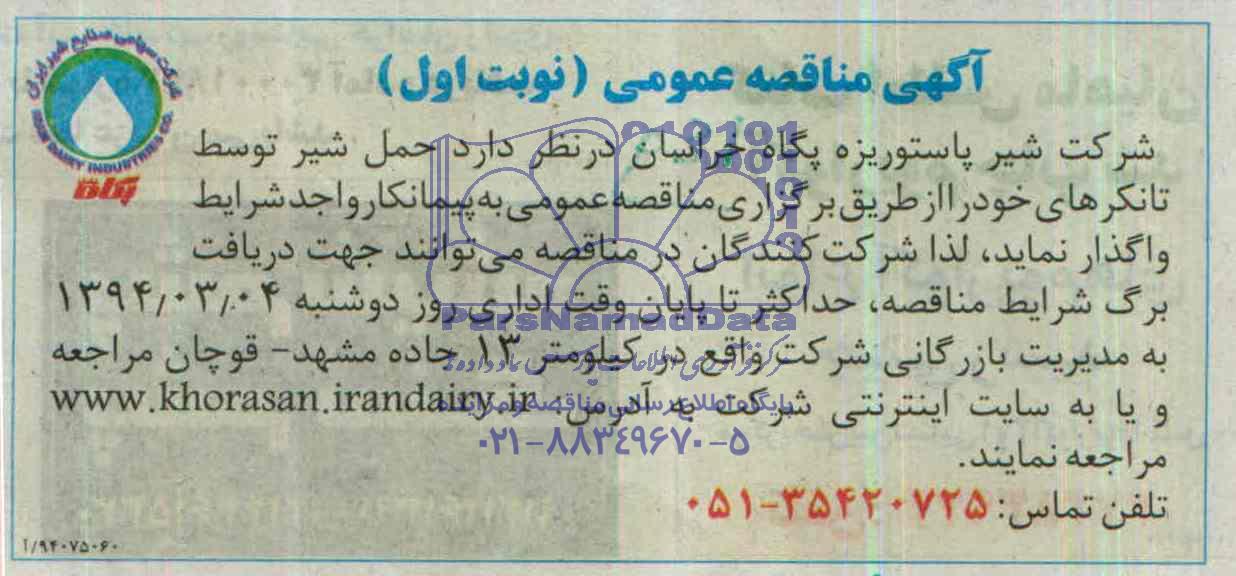 شرکت سهامی صنایع شیر ایران
IRAN DAIRY INDUSTRIES CO.
پگاه
آگهی مناقصه عمومی (نوبت اول)
شرکت شیر پاستوریزه پگاه خراسان درنظر دارد حمل شیر توسط
تانکرهای خود را از طریق برگزاری مناقصه عمومی به پیمانکار واجد شرایط
واگذار نماید، لذا شرکت کنندگان در مناقصه می‌توانند جهت دریافت
برگ شرایط مناقصه، حداکثر تا پایان وقت اداری روز دوشنبه ۱۳۹۴/۰۳/۰۴
به مدیریت بازرگانی شرکت واقع در کیلومتر ۱۳ جاده مشهد- قوچان مراجعه
و یا به سایت اینترنتی شرکت به آدرس www.khorasan.irandairy.ir
مراجعه نمایند.
تلفن تماس: ۰۵۱-۳۵۴۲۰۷۲۵
۱/۹۴۰۷۵۰۶۰
ParsNamadData
پایگاه اطلاع رسانی مناقصه و مزایده
۰۲۱-۸۸۳۴۹۶۷۰-۵